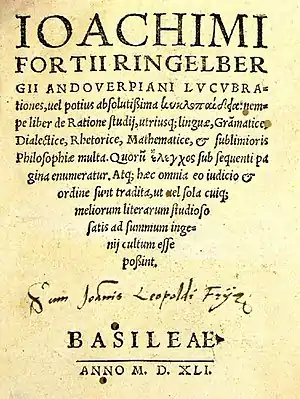 IOACHIMI
FORTII RINGELBER
GII ANDOVERPIANI LVCVBRA-
tiones, uel potius absolutißima κυκλοπαιδεια: nem-
pe liber de Ratione studij, utriusq; linguæ, Grãmatice,
Dialectice, Rhetorice, Mathematice, & sublimioris
Philosophiæ multa. Quorũ ἔλεγχος sub sequenti pa
gina enumeratur. Atq; hæc omnia eo iudicio &
ordine sunt tradita, ut uel sola cuiq;
meliorum literarum studioso
satis ad summum inge-
nij cultum esse
poßint.
Sum Joannis Leopoldi Frÿz
BASILEAE
ANNO M. D. XLI.